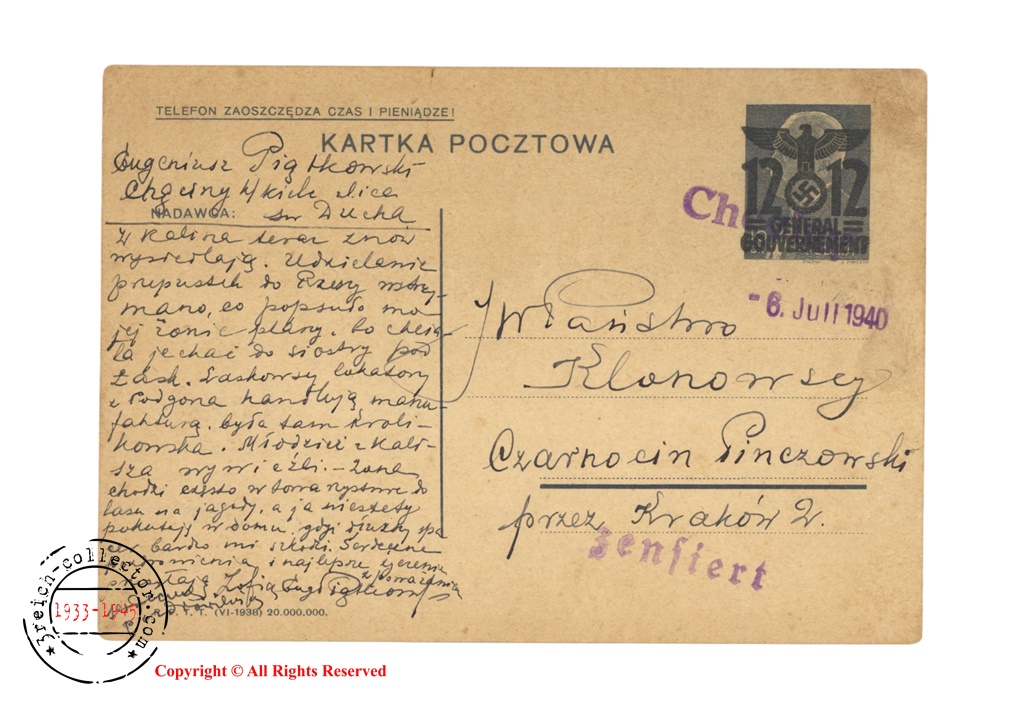 TELEFON ZAOSZCZĘDZA CZAS I PIENIĄDZE!
KARTKA POCZTOWA
Eugeniusz Piątkowski
Chęciny k/Kielc ulica
NADAWCA: św Ducha
Z Kalisza teraz znów
wysiedlają. Udzielanie
przepustek do Rzeszy wstrzy-
mano, co popsuło mo
jej żonie plany, bo chcia-
ła jechać do siostry pod
Łask. Laskowscy lokatorzy
z Podgona handlują manu-
fakturą, była tam Króli-
kowska. Młodzież z Kali-
sza wywieźli. – Żona
chodzi często w towarzystwie do
lasu na jagody, a ja niestety
pokutuję w domu, gdyż dłuższy spa
cer bardzo mi szkodzi. Serdeczne
i najlepsze życzenia
Zofia Eug Piątkowscy
R. P. T. T. (VI-1938) 20.000.000.
12 12
GENERAL
GOUVERNEMENT
-6. Juli 1940
JWPaństwo
Klonowscy
Czarnocin Pinczowski
przez Kraków 2.
zensiert
3reich-collector.com
1933-1945
Copyright © All Rights Reserved